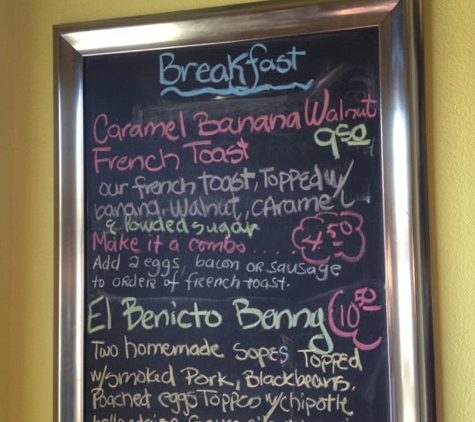 Breakfast
Caramel Banana Walnut
9.50
French Toast
our french toast, Topped w/
banana, walnut, caramel
& Powdered sugar
Make it a combo..... 4.50
Add 2 eggs, bacon or sausage
to order of french toast.
El Benicto Benny 10.50
Two homemade sopes Topped
w/smoked Pork, Blackbeans,
Poached eggs Topped w/chipotle